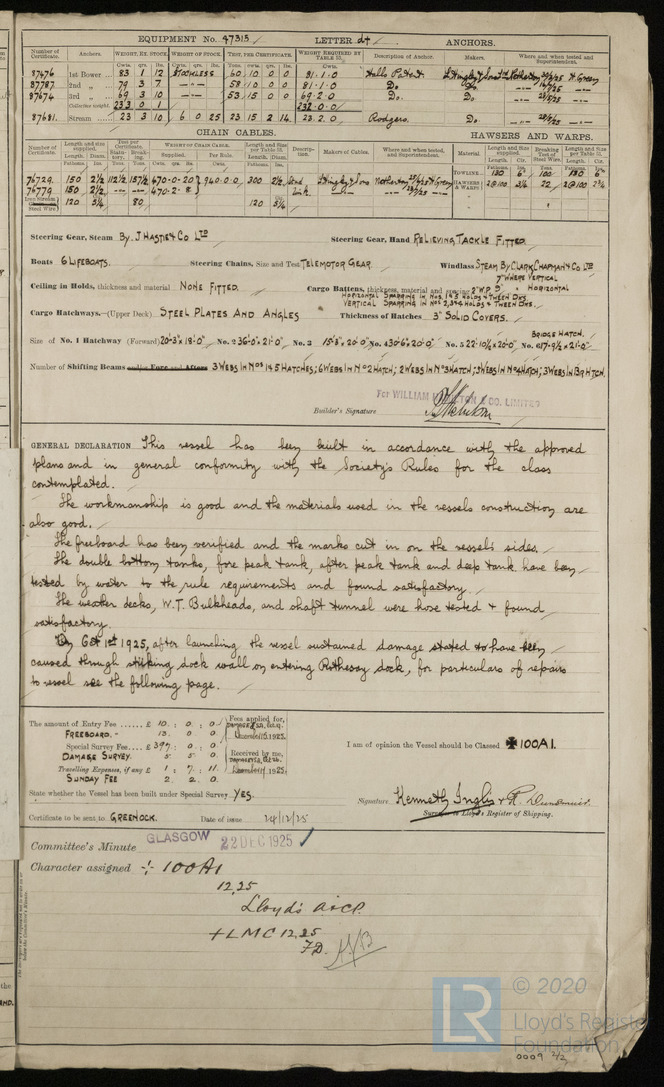 EQUIPMENT No. 47313 LETTER d† ANCHORS.
Number of Certificate. Anchors. WEIGHT, EX. STOCK. WEIGHT OF STOCK. TEST, PER CERTIFICATE. WEIGHT REQUIRED BY TABLE 53. Description of Anchor. Makers. Where and when tested and Superintendent.
Cwts. qrs. lbs. Cwts. qrs. lbs. Tons. cwts. qrs. lbs. Cwts.
87676 1st Bower ... 83 1 12 STOCKLESS 60 10 0 0 81.1.0 Halls Patent
87787 2nd „ ... 79 3 7 58 10 0 0 81.1.0 Do.
87674 3rd „ ... 69 3 10 53 15 0 0 69.2.0 Do. Do.
Collective weight. 233 0 1 232.0.0
87681. Stream ... 23 3 10 6 0 25 23 15 2 14 23.2.0 Rodgers. Do.
CHAIN CABLES. HAWSERS AND WARPS.
Number of Certificate. Length and size supplied. Test per Certificate. WEIGHT OF CHAIN CABLE. Length and Size per Table 53. Description. Makers of Cables. Where and when tested, and Superintendent. Material. Length and Size supplied. Breaking Test of Steel Wire. Length and Size per Table 53.
Fathoms. Diam. Statutory. Breaking. Supplied. Per Rule. Fathoms. Diam.
76729. 150 2½ 112½ 157½ 470-0-20 940.0.0 300 2½ Stud L. Hingley & Sons Netherton H. Green TOWLINE 130 6 100 130 6
76779 150 2½ 470.2.8 Link HAWSERS & WARPS 2@100 3¼ 22 2@100 2¾
Iron Stream Steel Wire 120 3¾ 80 120 3¾
Steering Gear, Steam By J. HASTIE & CO LTD Steering Gear, Hand RELIEVING TACKLE FITTED.
Boats 6 LIFEBOATS. Steering Chains, Size and Test TELEMOTOR GEAR. Windlass STEAM BY CLARK, CHAPMAN & CO LTD
Ceiling in Holds, thickness and material NONE FITTED. Cargo Battens, thickness, material and spacing 2" W.P. 9" HORIZONTAL 7" WHERE VERTICAL
HORIZONTAL SPARRING IN NOS. 1 & 5 HOLDS & TWEEN DKS.
VERTICAL SPARRING IN NOS 2, 3 & 4 HOLDS & TWEEN DKS.
Cargo Hatchways.—(Upper Deck) STEEL PLATES AND ANGLES Thickness of Hatches 3" SOLID COVERS.
BRIDGE HATCH.
Size of No. 1 Hatchway (Forward) 20'-3"x 18'-0" No. 2 36'-0"x 21'-0" No. 3 15'-9"x 20'-0" No. 4 30'-6"x 20'-0" No. 5 22'-10½"x 20'-0" No. 6 17'-9½"x 21'-0"
Number of Shifting Beams and/or Fore and Afters 3 WEBS IN NOS 1 & 5 HATCHES; 6 WEBS IN NO 2 HATCH; 2 WEBS IN NO 3 HATCH; 5 WEBS IN NO 4 HATCH; 3 WEBS IN BR HTCH.
For WILLIAM HAMILTON & CO. LIMITED
Builder's Signature
GENERAL DECLARATION This vessel has been built in accordance with the approved
plans and in general conformity with the Society's Rules for the class
contemplated.
The workmanship is good and the materials used in the vessels construction are
also good.
The freeboard has been verified and the marks cut in on the vessels sides.
The double bottom tanks, fore peak tank, after peak tank and deep tank have been
tested by water to the rule requirements and found satisfactory.
The weather decks, W.T. Bulkheads, and shaft tunnel were hose tested & found
satisfactory.
On Oct 1st 1925, after launching the vessel sustained damage stated to have been
caused through striking dock wall on entering Rothesay dock, for particulars of repairs
to vessel see the following page.
The amount of Entry Fee ...... £ 10 : 0 : 0 Fees applied for,
FREEBOARD.- 13 . 0 . 0 1925.
Special Survey Fee.... £ 397 : 0 : 0
DAMAGE SURVEY. 5 5 0 Received by me,
Travelling Expenses, if any £ 1 : 7 : 11 1925.
SUNDAY FEE 2 2 0
I am of opinion the Vessel should be Classed ✠ 100A1.
State whether the Vessel has been built under Special Survey YES.
Signature Kenneth Inglis & R. Dunsmuir.
Surveyor to Lloyd's Register of Shipping.
Certificate to be sent to GREENOCK. Date of issue 24/12/25
Committee's Minute GLASGOW 22 DEC 1925
Character assigned + 100A1
12,25
Lloyd's A&CP.
+ LMC 12,25
F.D.
© 2020
Lloyd's Register
Foundation
0009 2/2